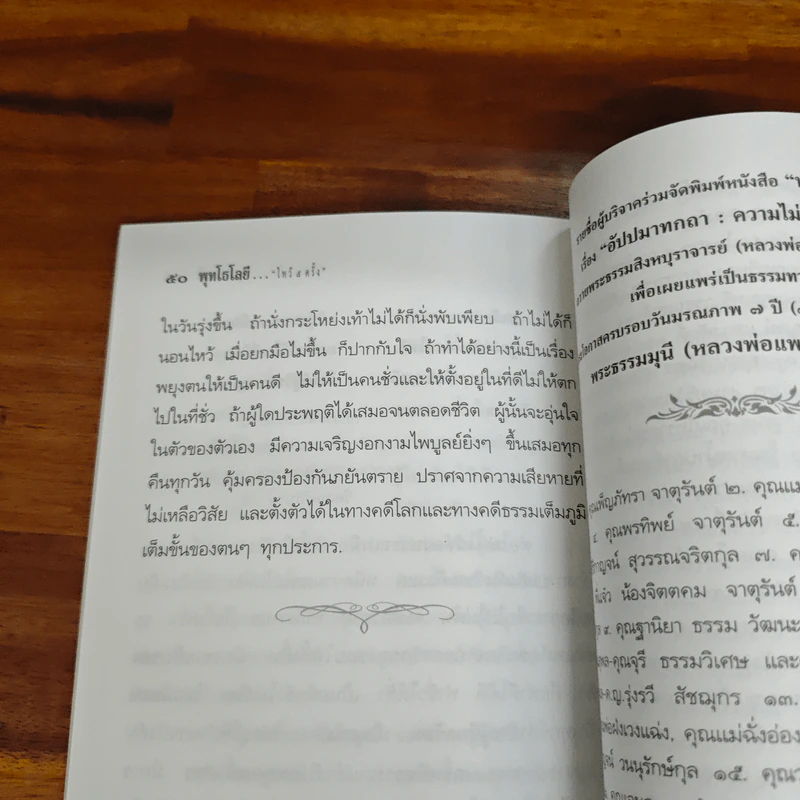 ๕๐ พุทโธโลยี... "ไหว้ ๕ ครั้ง"
ในวันรุ่งขึ้น ถ้านั่งกระโหย่งเท้าไม่ได้ก็นั่งพับเพียบ ถ้าไม่ได้ก็
นอนไหว้ เมื่อยกมือไม่ขึ้น ก็ปากกับใจ ถ้าทำได้อย่างนี้เป็นเรื่อง
พยุงตนให้เป็นคนดี ไม่ให้เป็นคนชั่วและให้ตั้งอยู่ในที่ดีไม่ให้ตก
ไปในที่ชั่ว ถ้าผู้ใดประพฤติได้เสมอจนตลอดชีวิต ผู้นั้นจะอุ่นใจ
ในตัวของตัวเอง มีความเจริญงอกงามไพบูลย์ยิ่งๆ ขึ้นเสมอทุก
คืนทุกวัน คุ้มครองป้องกันภยันตราย ปราศจากความเสียหายที่
ไม่เหลือวิสัย และตั้งตัวได้ในทางคดีโลกและทางคดีธรรมเต็มภูมิ
เต็มขั้นของตนๆ ทุกประการ.
รายชื่อผู้บริจาคร่วมจัดพิมพ์หนังสือ
เรื่อง "อัปปมาทกถา : ความไม่
พระธรรมสิงหบุราจารย์ (หลวงพ่อ
เพื่อเผยแพร่เป็นธรรมทา
โอกาสครบรอบวันมรณภาพ ๗ ปี
พระธรรมมุนี (หลวงพ่อแพ
จาตุรันต์ ๒. คุณแม่
คุณพรทิพย์ จาตุรันต์ ๕.
สุวรรณจริตกุล ๗.
น้องจิตตคม จาตุรันต์
คุณฐานิยา ธรรม วัฒนะ
คุณจุรี ธรรมวิเศษ และ
ด.ญ.รุ่งรวี สัชฌุกร ๑๓.
คุณแม่ฉั่งอ่อง
วนนุรักษ์กุล ๑๕.